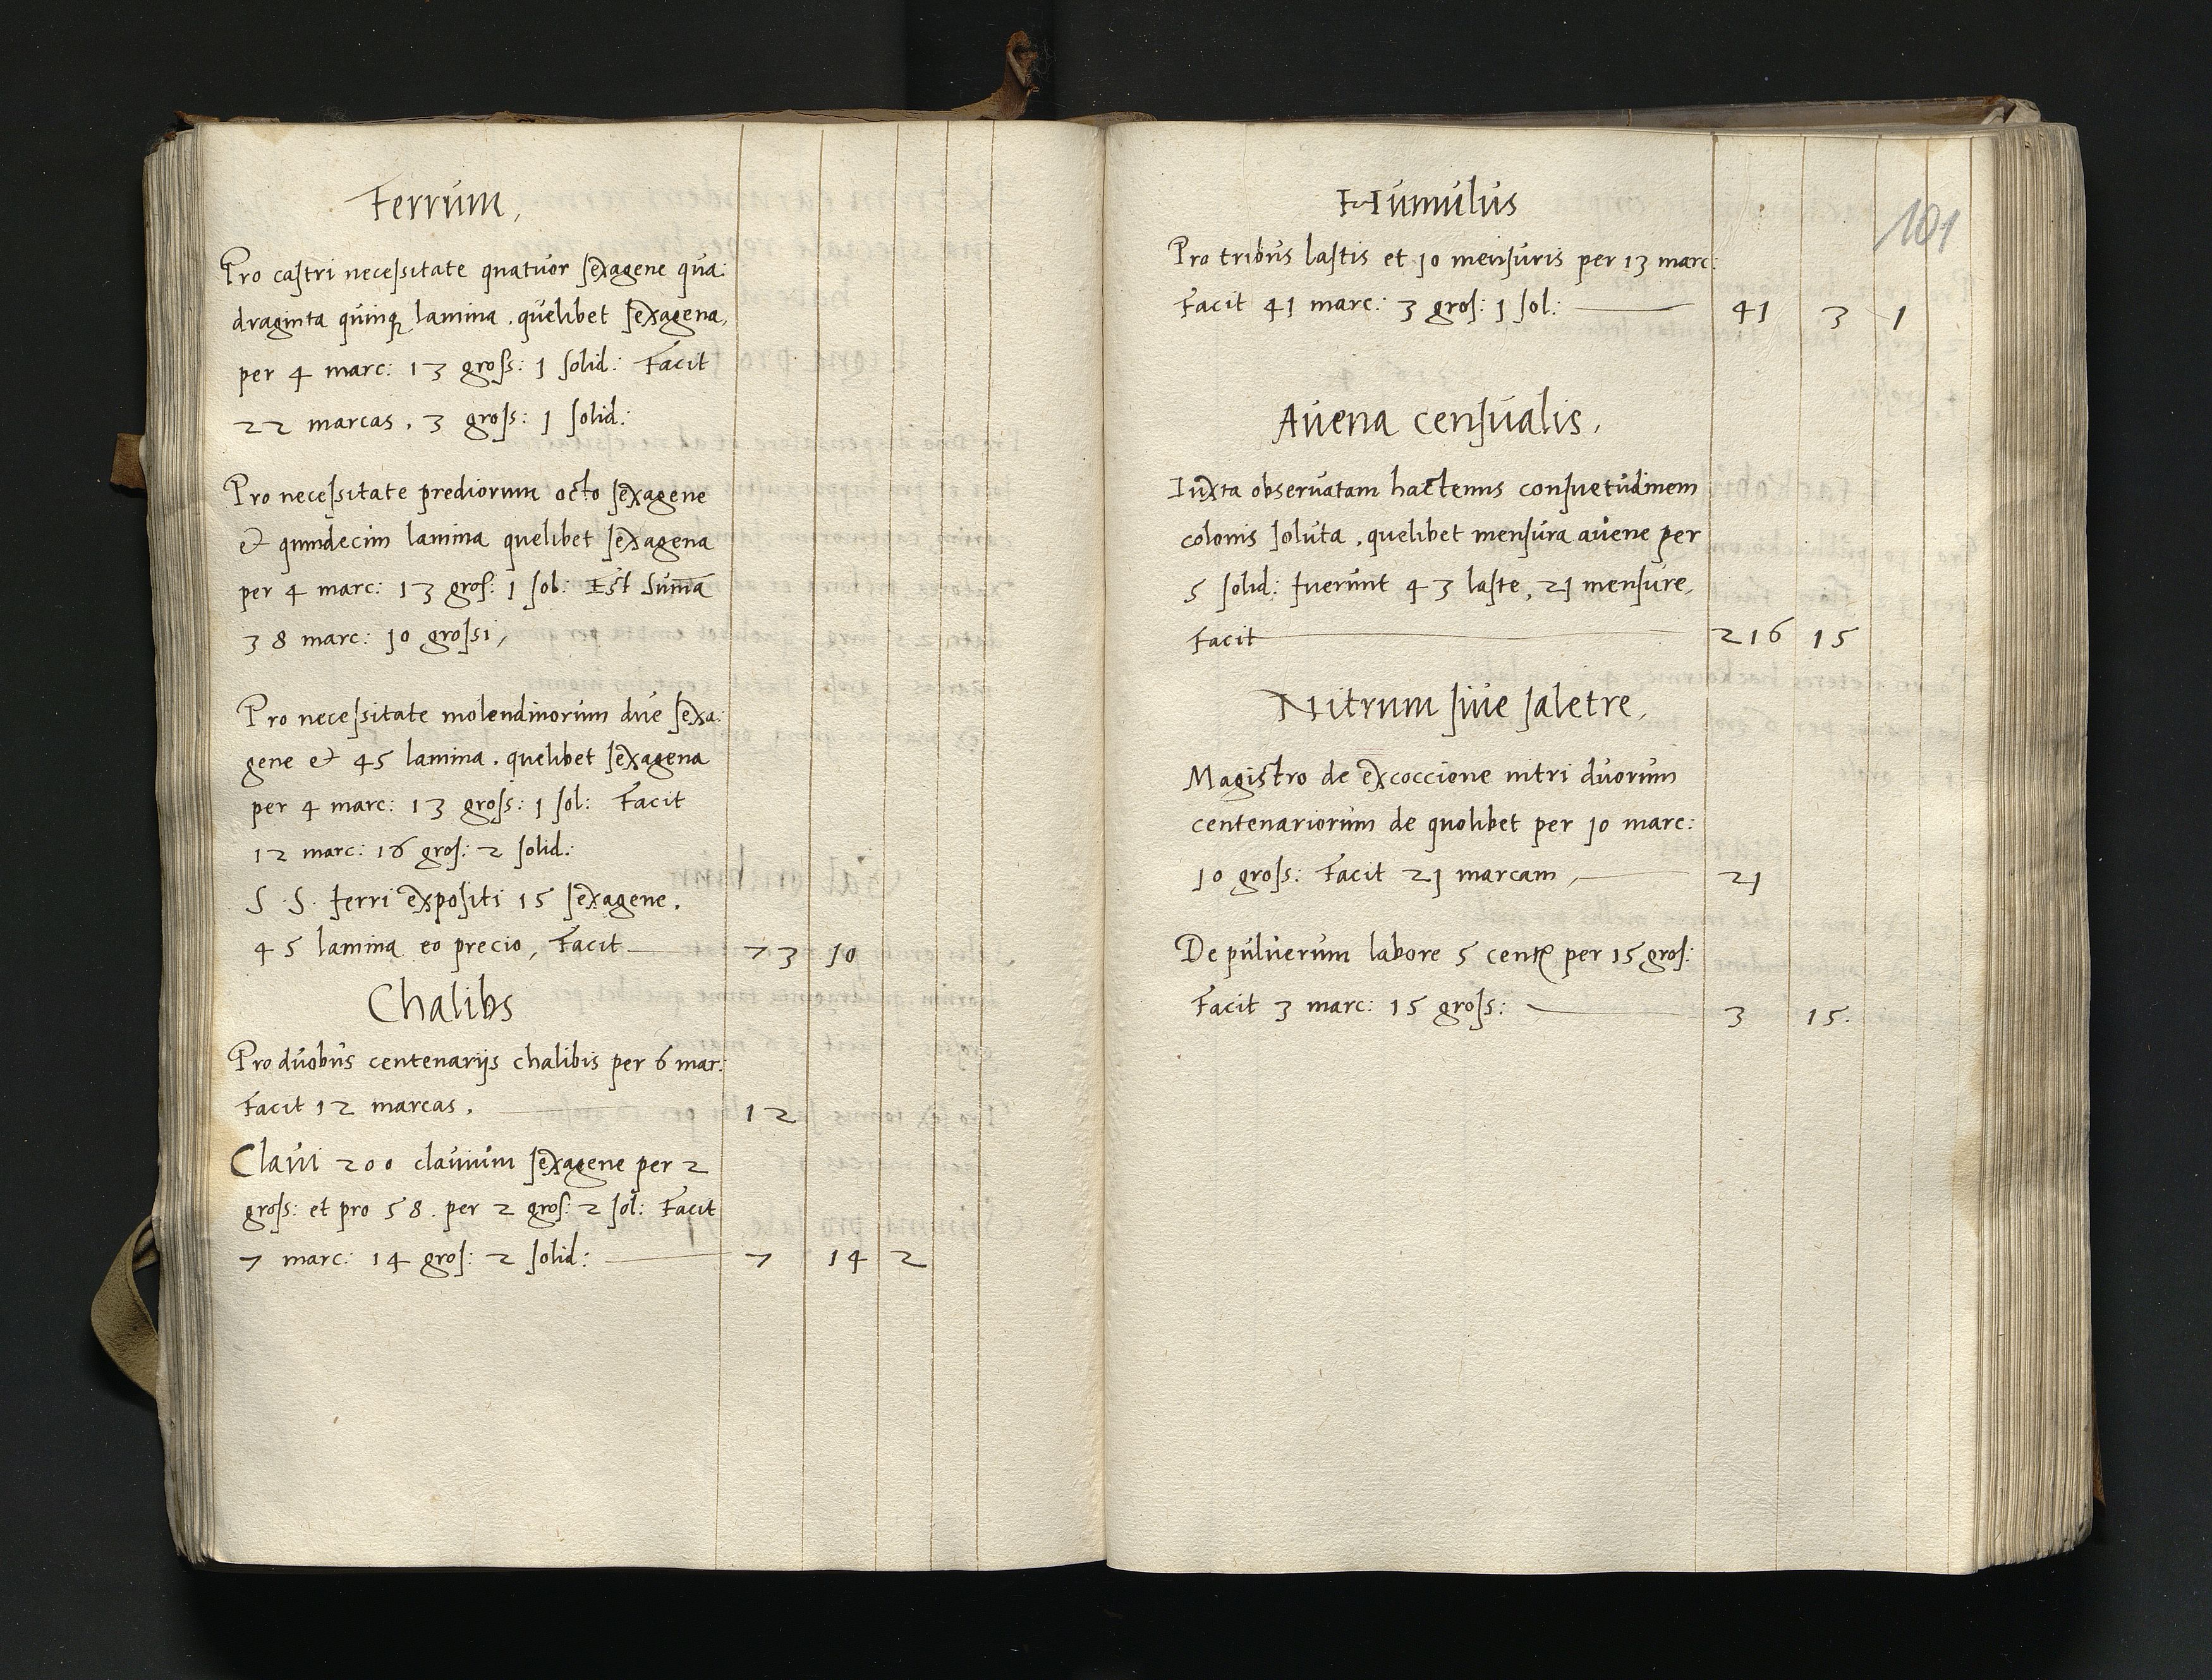 Ferrum,
Pro castri necessitate quatuor sexagene qua:
draginta quinq lamina. quelibet sexagena,
per 4 marc: 13 gross: 1 solid: Facit
22 marcas. 3 gross: 1 solid:
Pro necessitate prediorum octo sexagene
et quindecim lamina quelibet sexagena
per 4 marc: 13 gros: 1 sol: Est Suma
38 marc: 10 grossi,
Pro necessitate molendinorum due sexa:
gene et 45 lamina. quelibet sexagena
per 4 marc: 13 gross: 1 sol: Facit
12 marc: 16 gros: 2 solid:
S. S. ferri expositi 15 sexagene.
45 lamina eo precio, Facit 73 10
Chalibs
Pro duobus centenarijs chalibis per 6 mar:
Facit 12 marcas. 12
Claui 200 clauium sexagene per 2
gross: et pro 58. per 2 gros: 2 sol: Facit
7 marc: 14 gros: 2 solid: 7 14 2
101
Humulus
Pro tribus lastis et 10 mensuris per 13 marc:
Facit 41 marc: 3 gros: 1 sol: 41 3 1
Auena censualis,
Iuxta obseruatam hactenus consuetudinem
colonis soluta, quelibet mensura auene per
5 solid: fuerunt 43 laste, 21 mensure,
Facit 216 15
Nitrum siue saletre,
Magistro de excoccione nitri duorum
centenariorum de quolibet per 10 marc:
10 gross: Facit 21 marcam, 21
De puluerum labore 5 cent per 15 gros:
Facit 3 marc: 15 gross: 3 15.